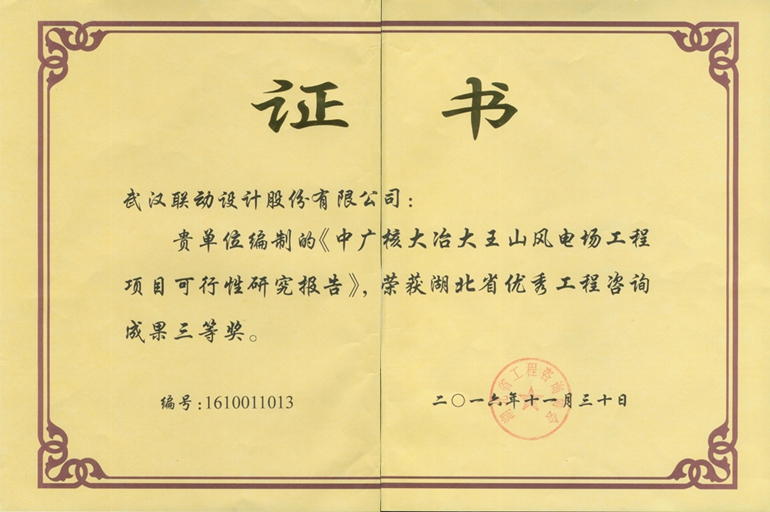 证书
武汉联动设计股份有限公司：
贵单位编制的《中广核大冶大王山风电场工程
项目可行性研究报告》，荣获湖北省优秀工程咨询
成果三等奖。
编号：1610011013
二〇一六年十一月三十日
省工程咨询